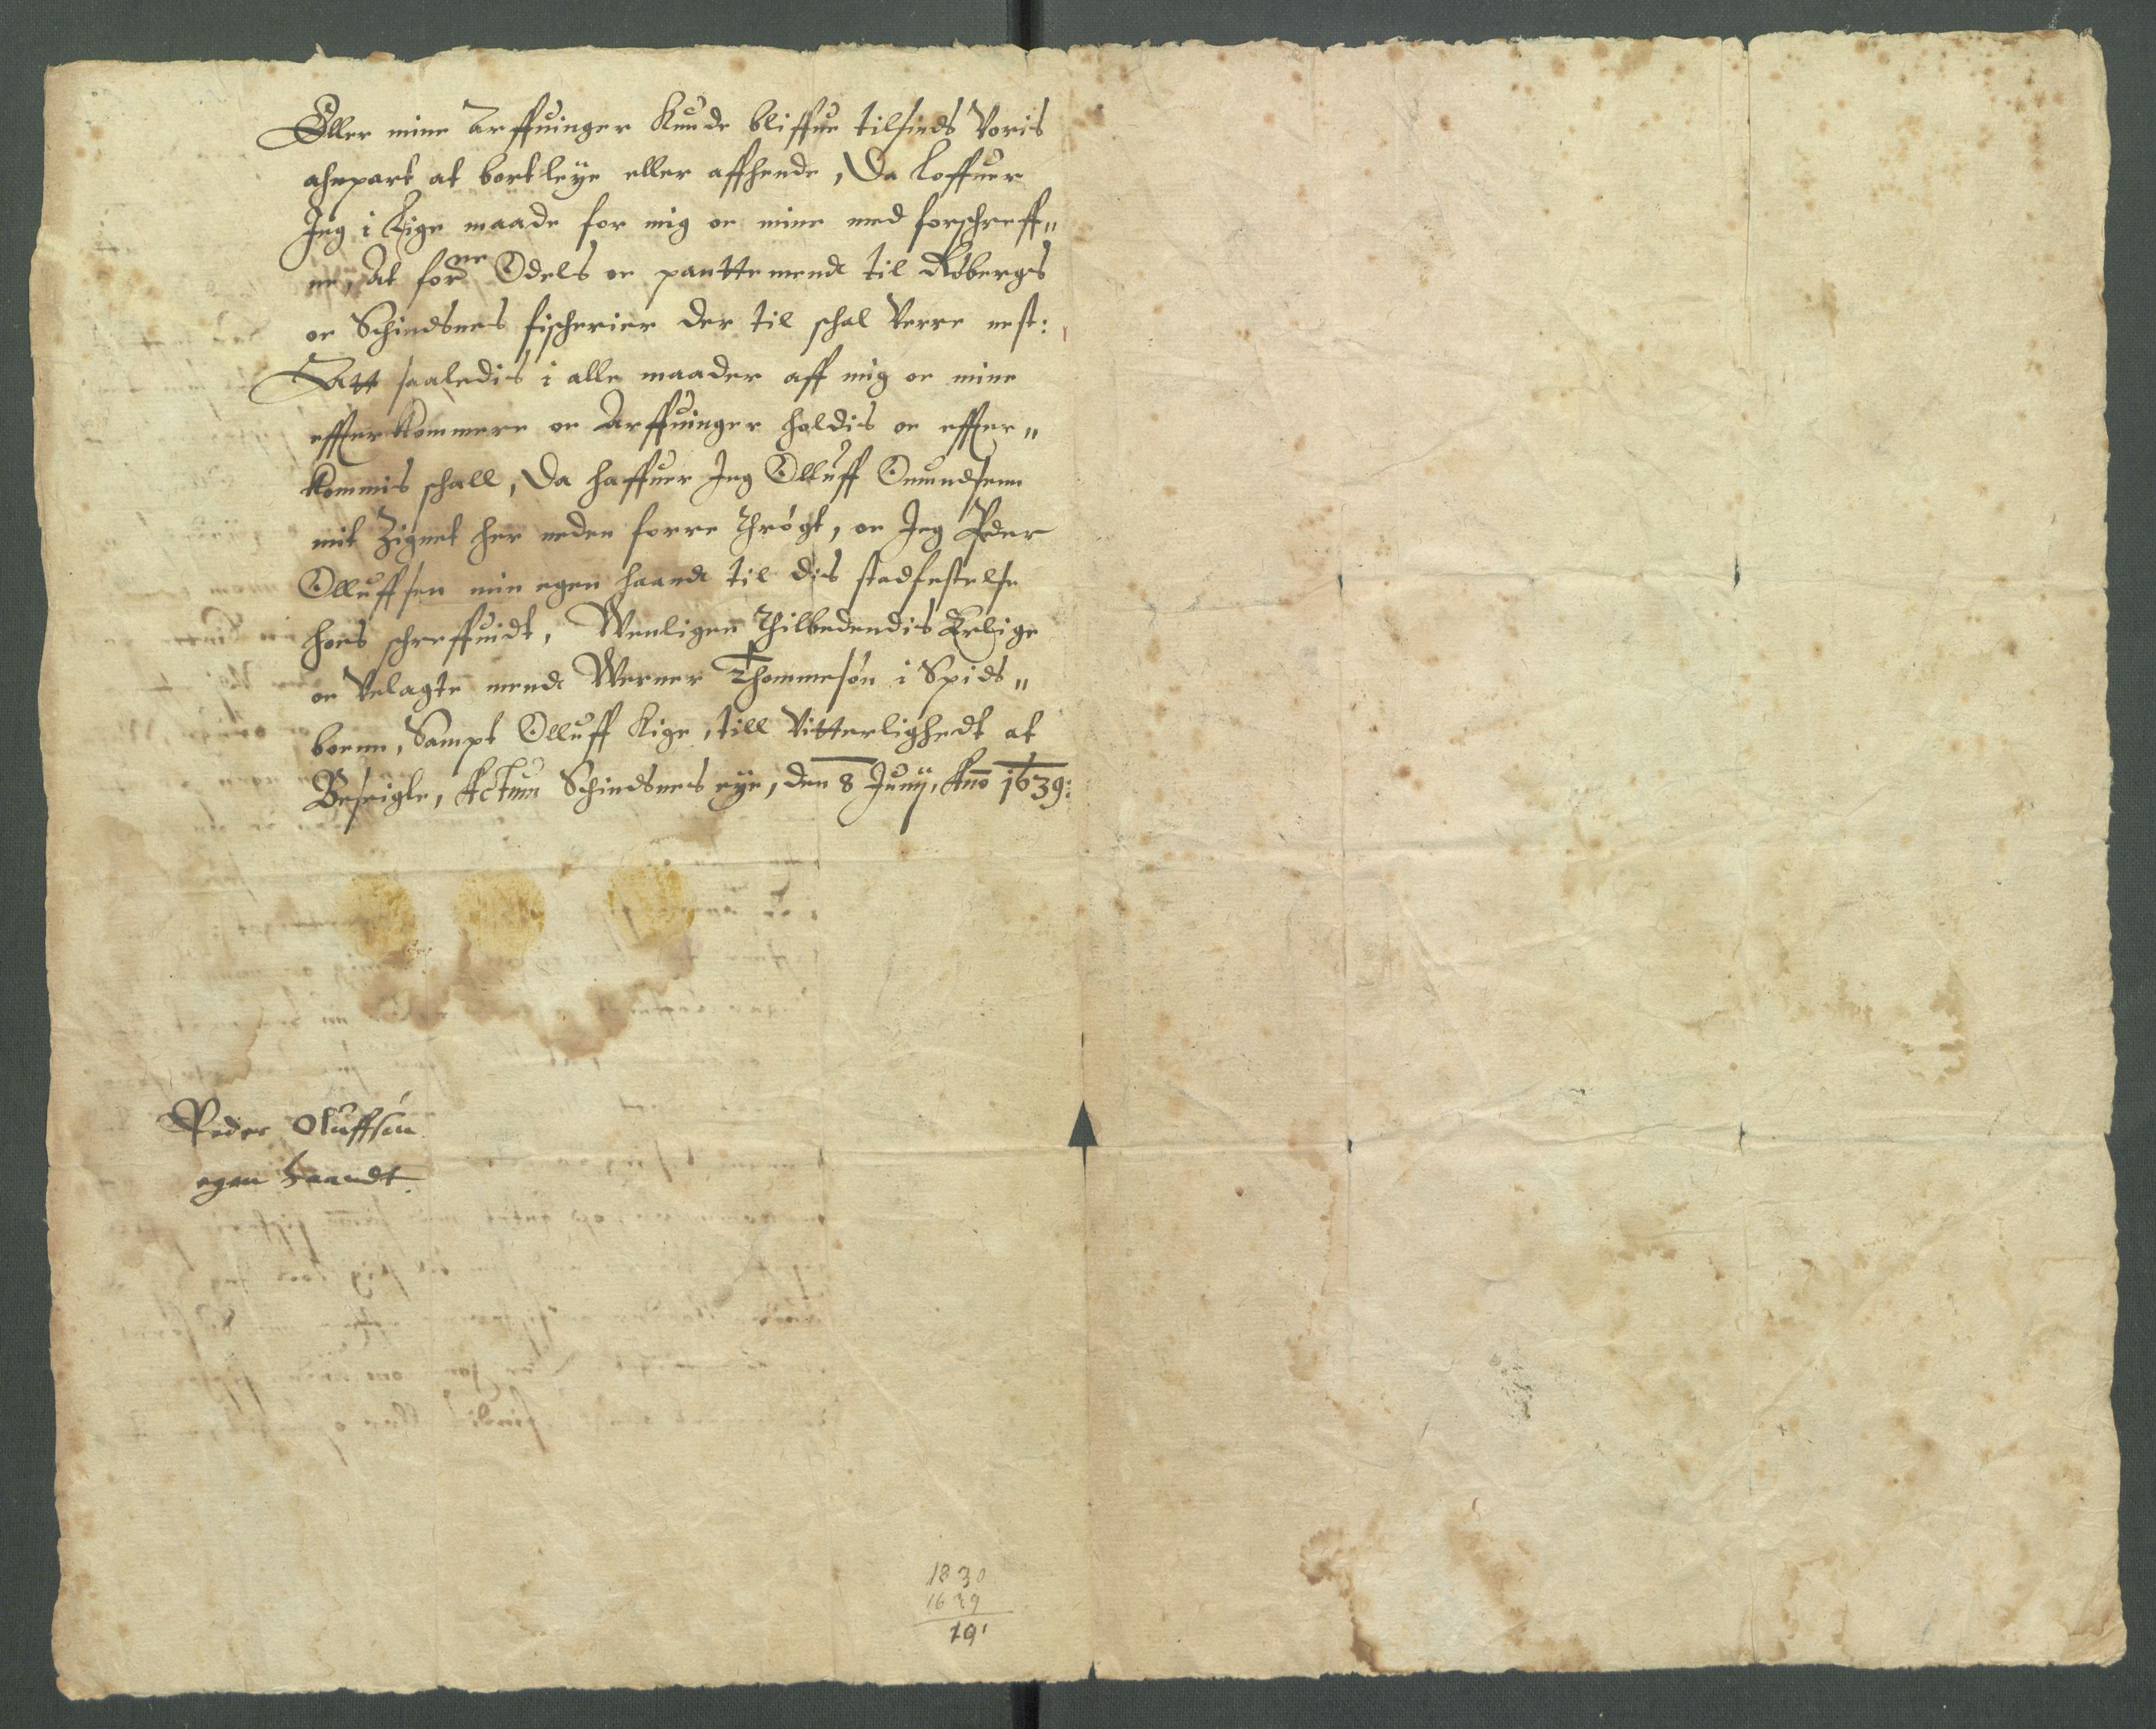 Eller mine Arffuinger Kunde bliffue tilsinds Voris
ahnpart at bortleye eller affhende, Da Loffuer
Jeg i Lige maade for mig oc mine med forschreff„
ne, At forne Odels oc panttemend til Röbergs
oc Schindsnes fischerier der til schal Verre nest:
Att saaledis i alle maader aff mig oc mine
effterkommere oc Arffuinger holdis oc effter„
kommis schall, Da haffuer Jeg Olluff Omundsenn
mit Zignet her neden forre thrögt, oc Jeg Peder
Olluffsen min egen haand til dis stadfestelse
hoes schreffuidt, Wenligen thilbedendis Erlige
oc Velagte mend Werner Thommesön i Spids„
boenn, Sampt Olluff Lige, till Vitterlighedt at
Beseigle, Actum Schindsnes eye, den 8 Junij, Ano 1639:
Peder Oluffsen
egen haandt
1830
1639
191